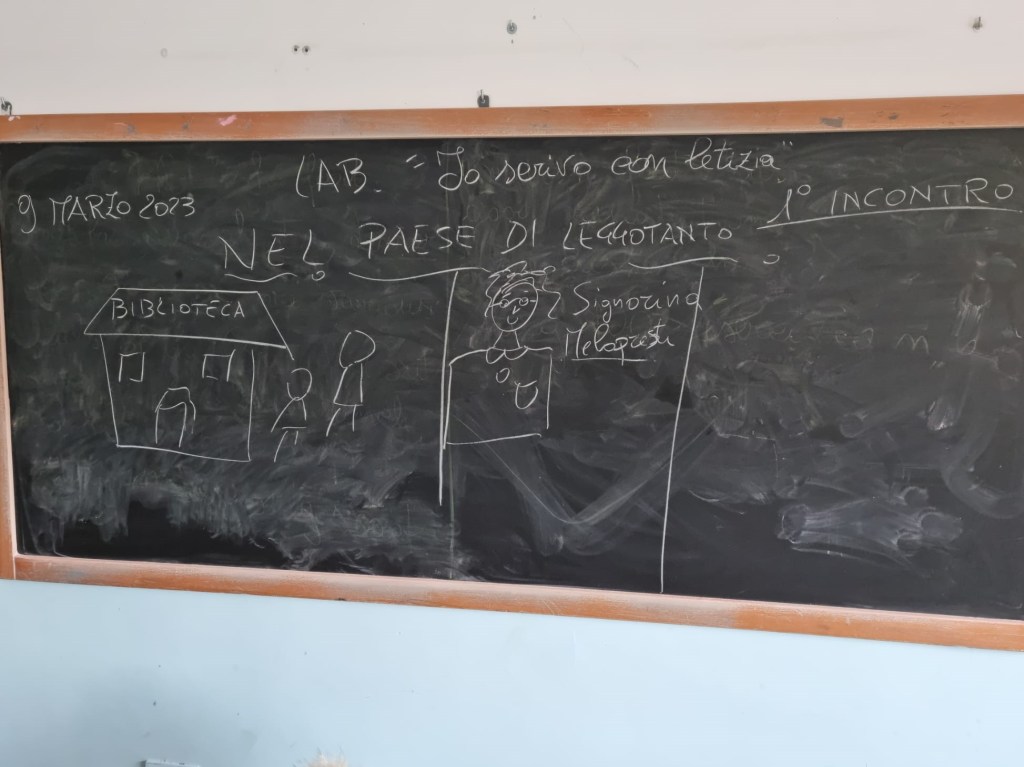 LAB. "Io scrivo con letizia"
9 MARZO 2023
1° INCONTRO
NEL PAESE DI LEGGOTANTO
BIBLIOTECA
Signorina